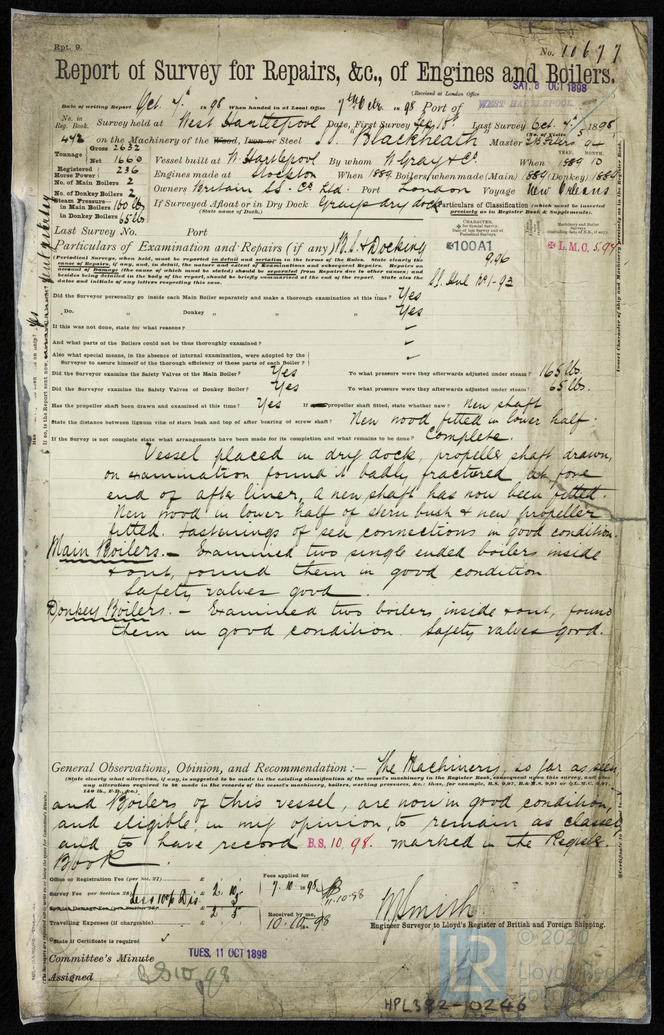 Rpt. 9.
No. 11677
Report of Survey for Repairs, &c., of Engines and Boilers.
(Received at London Office SAT. 8 OCT 1898
Date of writing Report Oct. 7th 1898 When handed in at Local Office 7th Octr. 1898 Port of WEST HARTLEPOOL
No. in Reg. Book. Survey held at West Hartlepool Date, First Survey Last Survey Oct. 7th 1898
(No. of Visits 5)
442 on the Machinery of the Wood, Iron or Steel Blackheath Master
Tonnage Gross 2632
Net 1660
Vessel built at W. Hartlepool By whom W. Gray & Co When 1889 10
YEAR. MONTH.
Registered Horse Power 236
Engines made at Stockton When 1889 Boilers, when made (Main) 1889 (Donkey) 1889
No. of Main Boilers 2
No. of Donkey Boilers 2
Owners Britain SS. Co. Ltd. Port London Voyage New Orleans
Steam Pressure— in Main Boilers 160 lbs
in Donkey Boilers 65 lb
If Surveyed Afloat or in Dry Dock Grays dry dock
(State name of Dock.)
Particulars of Classification (which must be inserted precisely as in Register Book & Supplements).
Last Survey No. Port
Particulars of Examination and Repairs (if any) B.S. & Docking
(Periodical Surveys, when held, must be reported in detail and seriatim in the terms of the Rules. State clearly the
cause of Repairs, if any, and, in detail, the nature and extent of Examinations and subsequent Repairs. Repairs on
account of Damage (the cause of which must be stated) should be separated from Repairs due to other causes; and
besides being detailed in the body of the report, should be briefly summarised at the end of the report. State also the
dates and initials of any letters respecting this case.
CHARACTER.
✠ for Special Survey.
Date of last Survey and of Periodical Surveys.
✠100A1
9,96
SS. Hul No 1-93
Machinery and Boiler Surveys
✠ L.M.C. 5,97
Did the Surveyor personally go inside each Main Boiler separately and make a thorough examination at this time? Yes
„ Do. „ Donkey „ „ „ Yes
If this was not done, state for what reasons?
And what parts of the Boilers could not be thoroughly examined?
Also what special means, in the absence of internal examination, were adopted by the
Surveyor to assure himself of the thorough efficiency of these parts of each Boiler?
Did the Surveyor examine the Safety Valves of the Main Boiler? Yes To what pressure were they afterwards adjusted under steam? 165 lbs.
Did the Surveyor examine the Safety Valves of Donkey Boiler? Yes To what pressure were they afterwards adjusted under steam? 65 lbs.
Has the propeller shaft been drawn and examined at this time? Yes If propeller shaft fitted, state whether new? New shaft
State the distance between lignum vitæ of stern bush and top of after bearing of screw shaft? New wood fitted in lower half.
If the Survey is not complete state what arrangements have been made for its completion and what remains to be done? Complete.
Vessel placed in dry dock, propeller shaft drawn,
on examination found it badly fractured at fore
end of after liner, a new shaft has now been fitted.
New wood in lower half of stern bush & new propeller
fitted. Fastenings of sea connections in good condition.
Main Boilers.— Examined two single ended boilers inside
& out, found them in good condition
Safety valves good.
Donkey Boilers.— Examined two boilers inside & out, found
them in good condition. Safety valves good.
General Observations, Opinion, and Recommendation :— The Machinery, so far as seen
(State clearly what alteration, if any, is suggested to be made in the existing classification of the vessel's machinery in the Register Book, consequent upon this survey, and also
any alteration required to be made in the records of the vessel's machinery, boilers, working pressures, &c.; thus, for example, B.S. 9,97, B.& M.S. 9,97 or ✠ L.M.C. 9,97,
and Boilers of this vessel, are now in good condition,
and eligible, in my opinion, to remain as classed
and to have record B.S. 10,98. marked in the Register
Book.
Office or Registration Fee (per Sec. 27) £
Survey Fee (per Section 28) £ 2. 10
Less 10% Dis. 5
£ 2. 5
Travelling Expenses (if chargeable) £
Fees applied for 7.10.1898
11-10-98
Received by me, 10.10.1898
W. Smith
Engineer Surveyor to Lloyd's Register of British and Foreign Shipping.
State if Certificate is required
Committee's Minute TUES. 11 OCT 1898
Assigned BS 10,98
LR © 2020
Lloyd's Register
Foundation
HPL382-10246